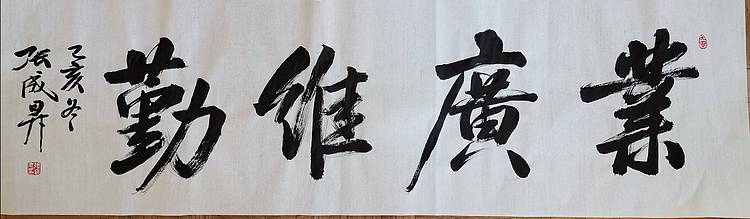 業廣維勤
己亥冬
张成昇